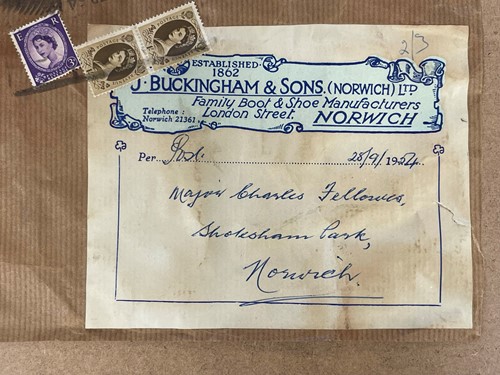 E R
2/3
ESTABLISHED
1862
J. BUCKINGHAM & SONS. (NORWICH) LTD
Family Boot & Shoe Manufacturers
Telephone :
Norwich 21361
London Street, NORWICH
Per Post 28/9/1954
Major Charles Fellowes,
Shotesham Park,
Norwich.